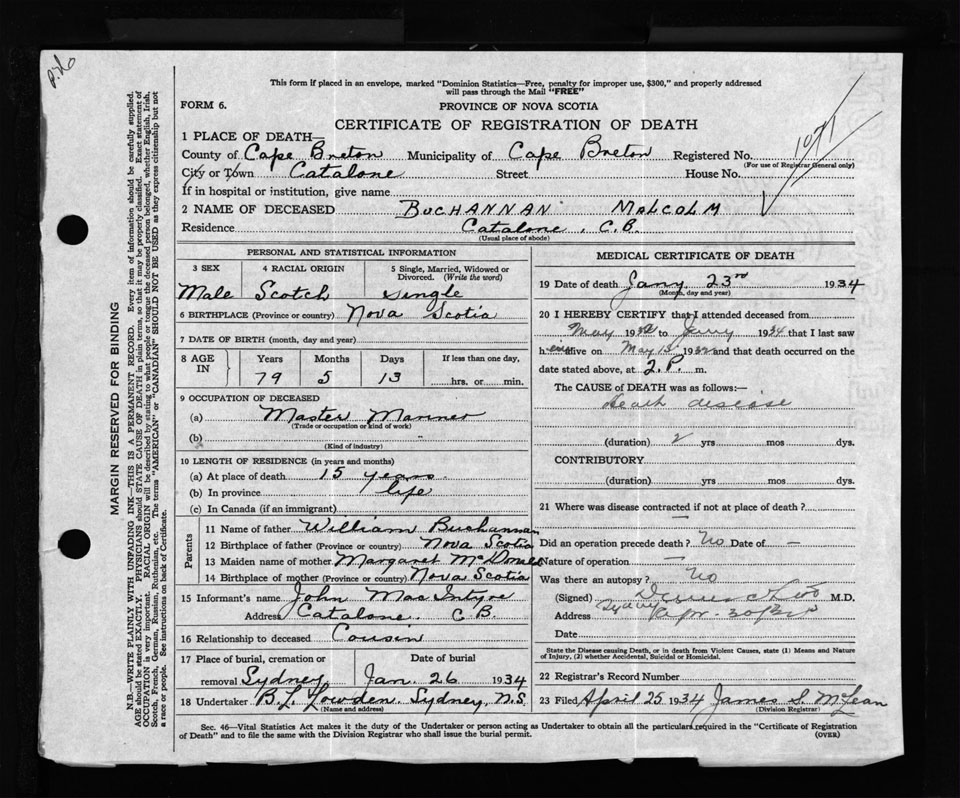 This form if placed in an envelope, marked "Dominion Statistics—Free, penalty for improper use, $300," and properly addressed
will pass through the Mail "FREE"
FORM 6.
PROVINCE OF NOVA SCOTIA
CERTIFICATE OF REGISTRATION OF DEATH
1071
1 PLACE OF DEATH—
County of Cape Breton Municipality of Cape Breton Registered No.
(For use of Registrar General only)
City or Town Catalone Street House No.
If in hospital or institution, give name
2 NAME OF DECEASED BUCHANNAN MALCOLM
Residence Catalone, C.B.
(Usual place of abode)
PERSONAL AND STATISTICAL INFORMATION
3 SEX 4 RACIAL ORIGIN 5 Single, Married, Widowed or Divorced. (Write the word)
Male Scotch single
6 BIRTHPLACE (Province or country) Nova Scotia
7 DATE OF BIRTH (month, day and year)
8 AGE IN Years Months Days If less than one day,
79 5 13 hrs. or min.
9 OCCUPATION OF DECEASED
(a) Master Mariner
(Trade or occupation or kind of work)
(b) "
(Kind of industry)
10 LENGTH OF RESIDENCE (in years and months)
(a) At place of death 15 years
(b) In province life
(c) In Canada (if an immigrant)
Parents
11 Name of father William Buchannan
12 Birthplace of father (Province or country) Nova Scotia
13 Maiden name of mother Margaret McDonald
14 Birthplace of mother (Province or country) Nova Scotia
15 Informant's name John MacIntyre
Address Catalone, C.B.
16 Relationship to deceased Cousin
17 Place of burial, cremation or Date of burial
removal Sydney Jan. 26 1934
18 Undertaker B. L. Lowden. Sydney, N.S.
(Name and address)
MEDICAL CERTIFICATE OF DEATH
19 Date of death Jany 23rd 1934
(Month, day and year)
20 I HEREBY CERTIFY that I attended deceased from
May 1932 to Jany 1934 that I last saw
h im alive on May 15 1932 and that death occurred on the
date stated above, at 2.P. m.
The CAUSE of DEATH was as follows:—
Heart disease
(duration) 2 yrs mos dys.
CONTRIBUTORY
(duration) yrs. mos. dys.
21 Where was disease contracted if not at place of death?
—
Did an operation precede death? No Date of —
Nature of operation —
Was there an autopsy? No
(Signed) M.D.
Address Sydney
Date
State the Disease causing Death, or in death from Violent Causes, state (1) Means and Nature
of Injury, (2) whether Accidental, Suicidal or Homicidal.
22 Registrar's Record Number
23 Filed April 25 1934 James S. McLean
(Division Registrar)
Sec. 46—Vital Statistics Act makes it the duty of the Undertaker or person acting as Undertaker to obtain all the particulars required in the "Certificate of Registration
of Death" and to file the same with the Division Registrar who shall issue the burial permit. (OVER)
MARGIN RESERVED FOR BINDING
N.B.—WRITE PLAINLY WITH UNFADING INK—THIS IS A PERMANENT RECORD. Every item of information should be carefully supplied.
AGE should be stated EXACTLY. PHYSICIANS should STATE CAUSE OF DEATH in plain terms, so that it may be properly classified. Exact statement of
OCCUPATION is very important. RACIAL ORIGIN will be described by stating to what people or tongue the deceased person belonged, whether English, Irish,
Scotch, French, German, Russian, Ruthenian, etc. The terms "AMERICAN" or "CANADIAN" SHOULD NOT BE USED as they express citizenship but not
a race or people. See instructions on back of Certificate.